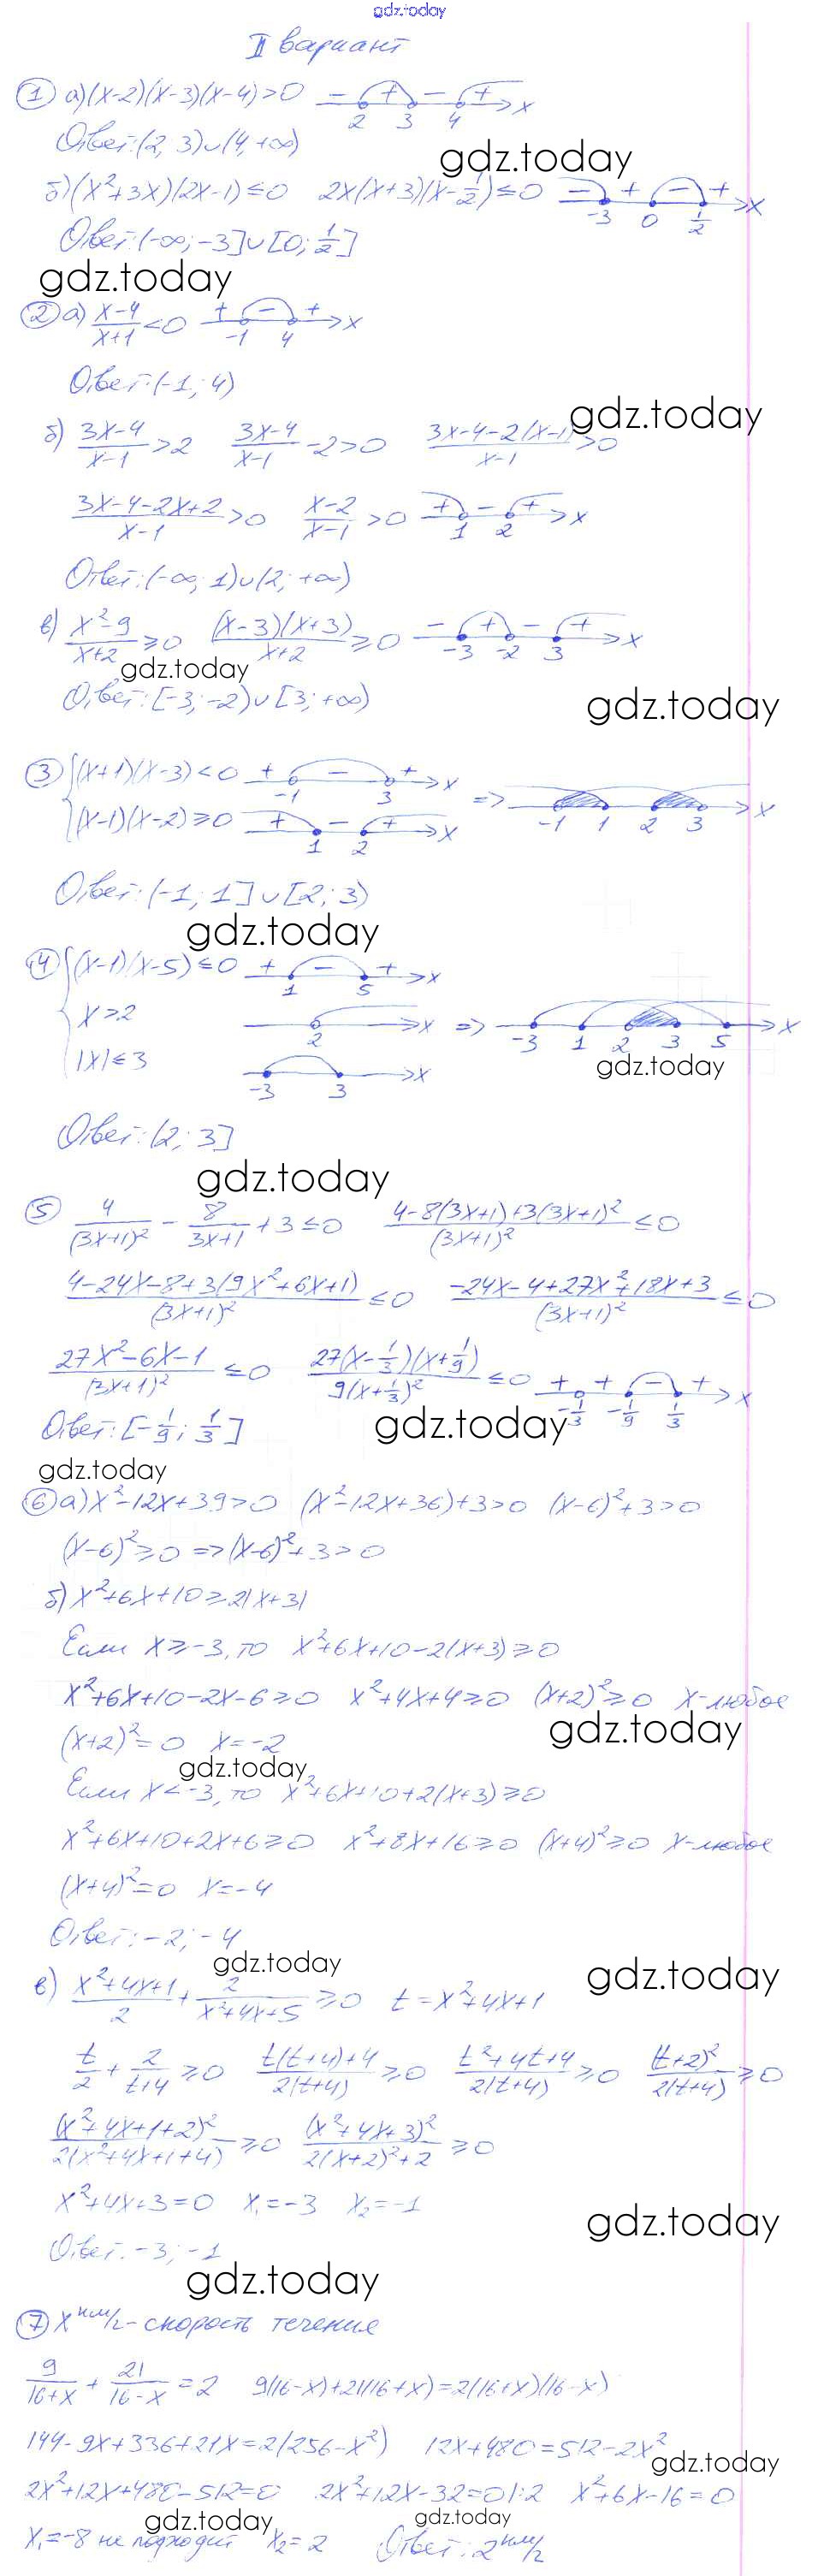 gdz.today
II вариант
1 а) (x-2)(x-3)(x-4)>0 - + - + 2 3 4 x
Ответ: (2, 3)∪(4, +∞)
gdz.today
б) (x²+3x)(2x-1)≤0 2x(x+3)(x-1/2)≤0 - + - + -3 0 1/2 x
Ответ: (-∞; -3]∪[0; 1/2]
gdz.today
2 а) (x-4)/(x+1)<0 + - + -1 4 x
Ответ: (-1; 4)
gdz.today
б) (3x-4)/(x-1)>2 (3x-4)/(x-1)-2>0 (3x-4-2(x-1))/(x-1)>0
(3x-4-2x+2)/(x-1)>0 (x-2)/(x-1)>0 + - + 1 2 x
Ответ: (-∞; 1)∪(2; +∞)
в) (x²-9)/(x+2)≥0 ((x-3)(x+3))/(x+2)≥0 - + - + -3 -2 3 x
gdz.today
Ответ: [-3; -2)∪[3; +∞)
gdz.today
3 {(x+1)(x-3)<0 + - + -1 3 x
(x-1)(x-2)≥0 + - + 1 2 x => -1 1 2 3 x
Ответ: (-1; 1]∪[2; 3)
gdz.today
4 {(x-1)(x-5)≤0 + - + 1 5 x
x>2 2 x => -3 1 2 3 5 x
|x|≤3 -3 3 x
gdz.today
Ответ: (2; 3]
gdz.today
5 4/(3x+1)² - 8/(3x+1) + 3≤0 (4-8(3x+1)+3(3x+1)²)/(3x+1)²≤0
(4-24x-8+3(9x²+6x+1))/(3x+1)²≤0 (-24x-4+27x²+18x+3)/(3x+1)²≤0
(27x²-6x-1)/(3x+1)²≤0 (27(x-1/3)(x+1/9))/(9(x+1/3)²)≤0 + + - + -1/3 -1/9 1/3 x
Ответ: [-1/9; 1/3]
gdz.today
gdz.today
6 а) x²-12x+39>0 (x²-12x+36)+3>0 (x-6)²+3>0
(x-6)²≥0 => (x-6)²+3>0
б) x²+6x+10≥2|x+3|
Если x≥-3, то x²+6x+10-2(x+3)≥0
x²+6x+10-2x-6≥0 x²+4x+4≥0 (x+2)²≥0 x-любое
(x+2)²=0 x=-2
gdz.today
gdz.today
Если x<-3, то x²+6x+10+2(x+3)≥0
x²+6x+10+2x+6≥0 x²+8x+16≥0 (x+4)²≥0 x-любое
(x+4)²=0 x=-4
Ответ: -2; -4
gdz.today
gdz.today
в) (x²+4x+1)/2 + 2/(x²+4x+5)≥0 t=x²+4x+1
t/2 + 2/(t+4)≥0 (t(t+4)+4)/(2(t+4))≥0 (t²+4t+4)/(2(t+4))≥0 (t+2)²/(2(t+4))≥0
(x²+4x+1+2)²/(2(x²+4x+1+4))≥0 (x²+4x+3)²/(2(x+2)²+2)≥0
x²+4x+3=0 x₁=-3 x₂=-1
gdz.today
Ответ: -3; -1
gdz.today
7 x км/ч - скорость течения
9/(16+x) + 21/(16-x) = 2 9(16-x)+21(16+x)=2(16+x)(16-x)
144-9x+336+21x=2(256-x²) 12x+480=512-2x²
gdz.today
2x²+12x+480-512=0 2x²+12x-32=0|:2 x²+6x-16=0
gdz.today
gdz.today
x₁=-8 не подходит x₂=2 Ответ: 2 км/ч